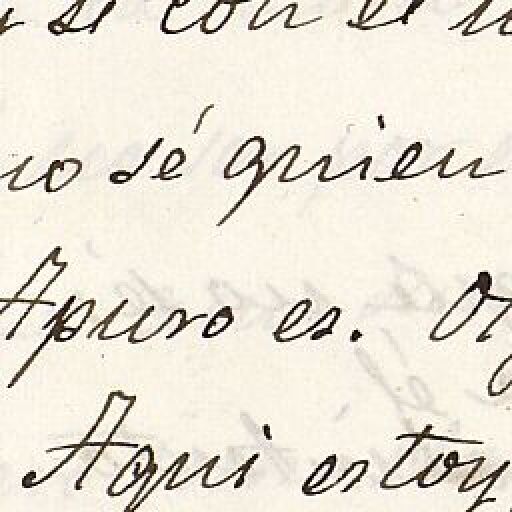 se con el
no sé quien
Apuro es.
Aqui estoy